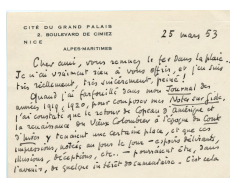 CITÉ DU GRAND PALAIS
2, BOULEVARD DE CIMIEZ
NICE
ALPES-MARITIMES
25 mars 53
Cher ami, vous remuez le fer dans la plaie...
Je n'ai vraiment rien à vous offrir, et j'en suis
très réellement, très sincèrement, peiné !
Quand j'ai farfouillé dans mon Journal des
années 1919, 1920, pour composer mes Notes sur Gide,
j'ai constaté que le retour de Copeau d'Amérique et
la renaissance du Vieux Colombier à l'époque du Conte
d'hiver y tenaient une certaine place, et que ces
impressions, notées au jour le jour – espoirs délirants,
illusions, déceptions, etc... – pourraient être, dans
l'avenir, de quelque intérêt documentaire. C'est cela